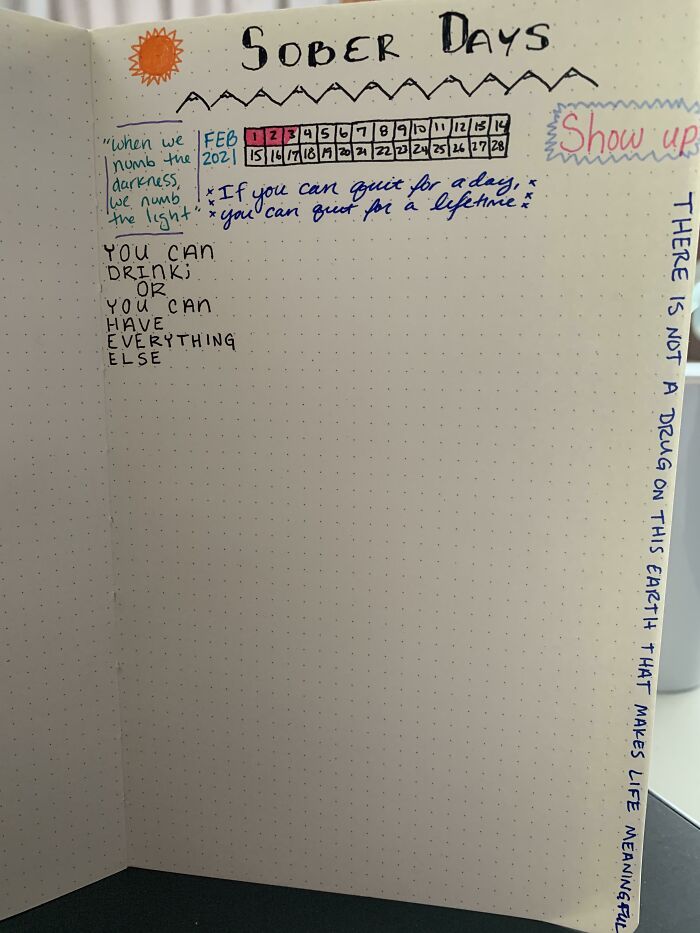 SOBER DAYS
"When we
numb the
darkness,
we numb
the light"
FEB
2021
1 2 3 4 5 6 7 8 9 10 11 12 13 14
15 16 17 18 19 20 21 22 23 24 25 26 27 28
Show up
If you can quit for a day,
you can quit for a lifetime
YOU CAN
DRINK;
OR
YOU CAN
HAVE
EVERYTHING
ELSE
THERE IS NOT A DRUG ON THIS EARTH THAT MAKES LIFE MEANINGFUL